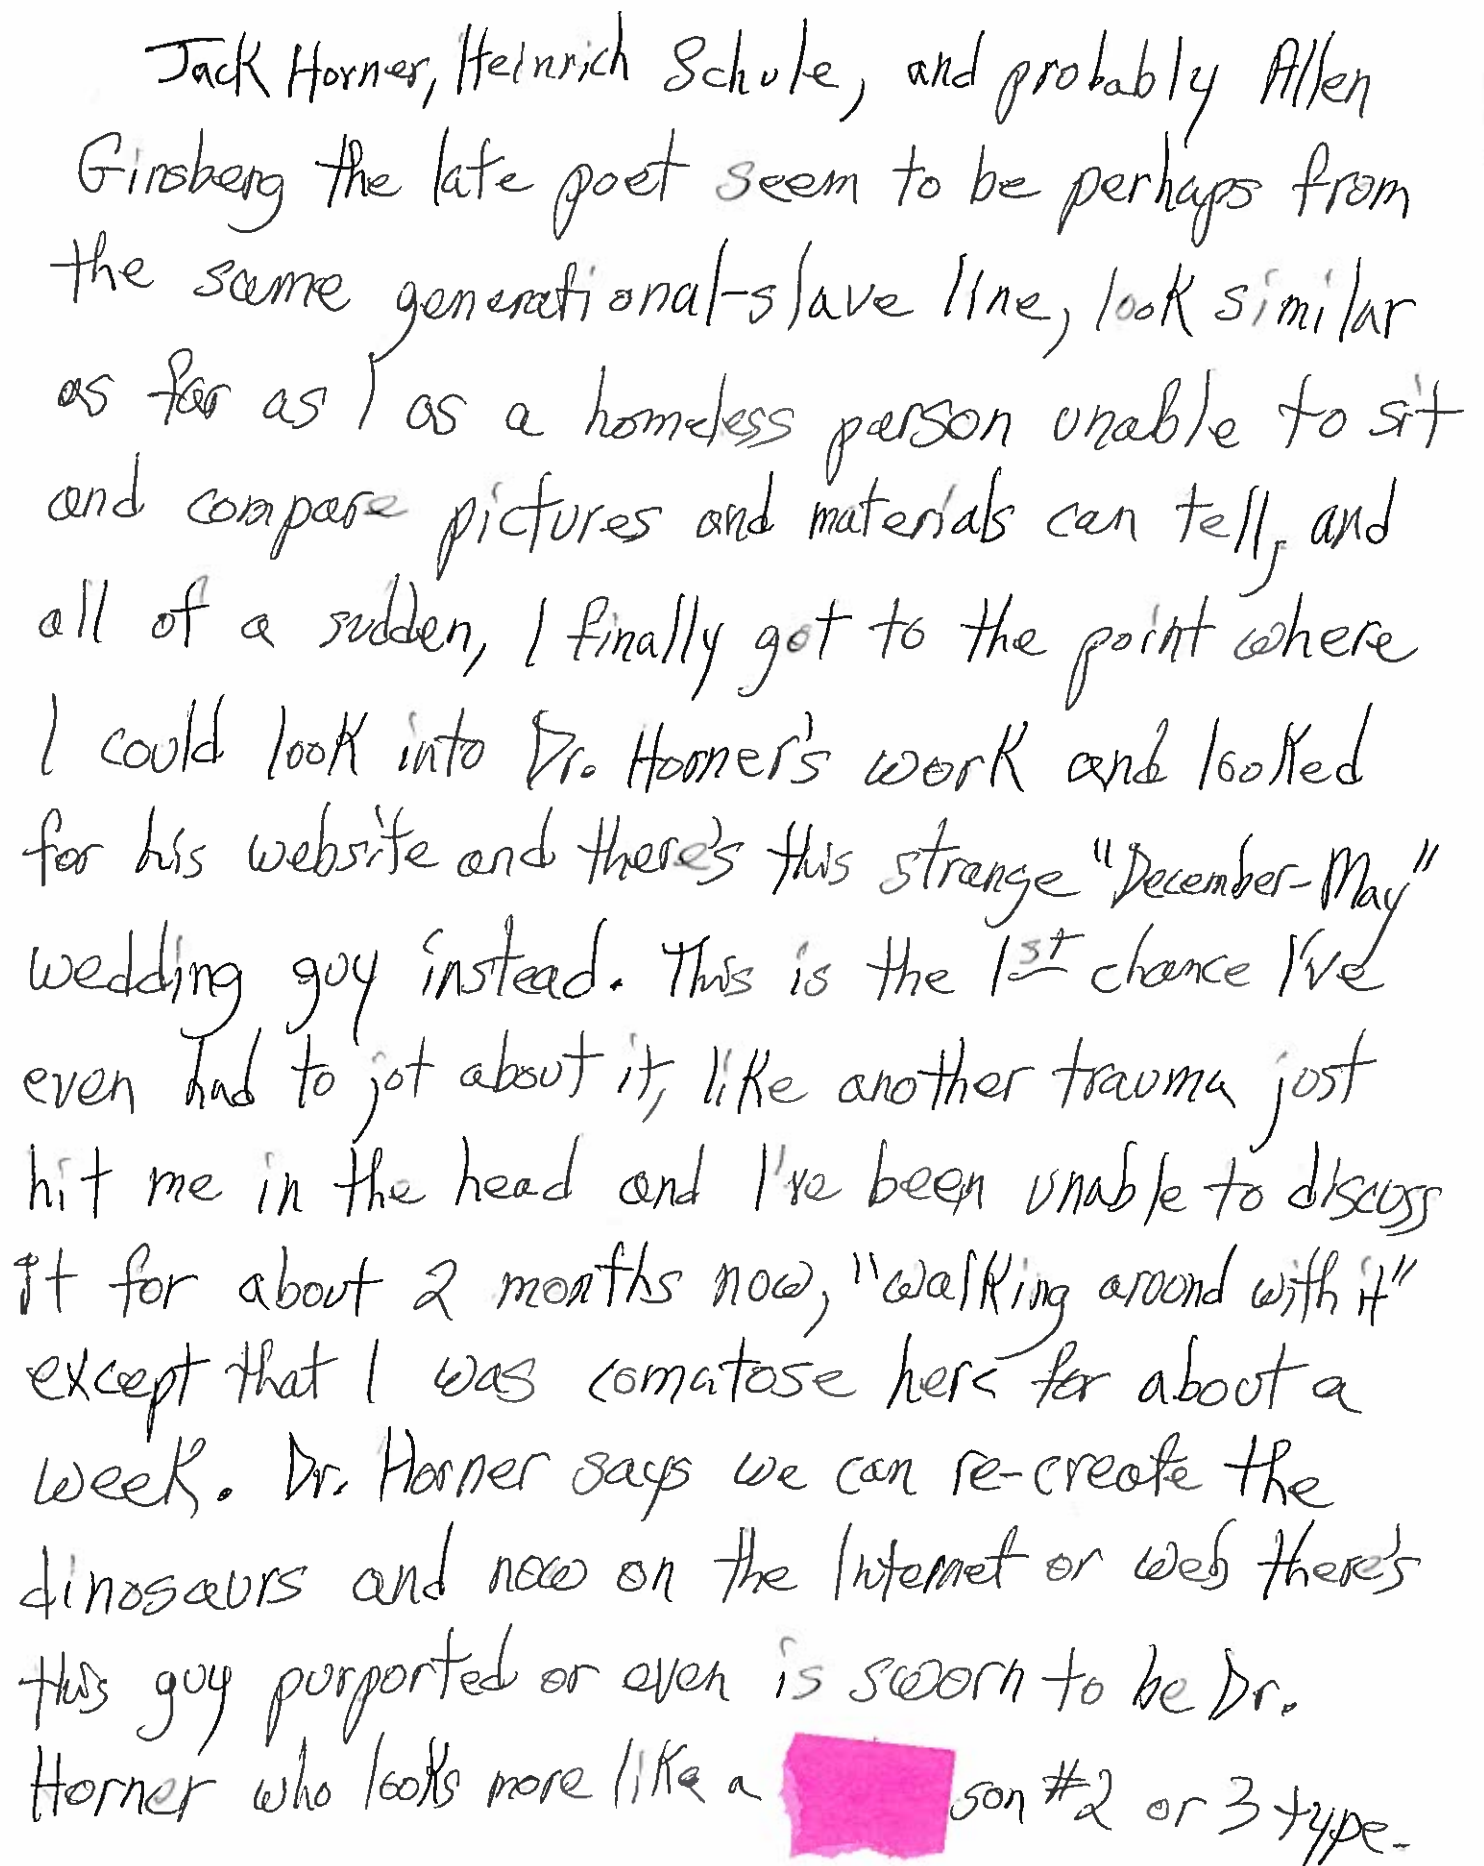 Jack Horner, Heinrich Schule, and probably Allen
Ginsberg the late poet seem to be perhaps from
the same generational-slave line, look similar
as far as I as a homeless person unable to sit
and compare pictures and materials can tell, and
all of a sudden, I finally got to the point where
I could look into Dr. Horner's work and looked
for his website and there's this strange "December-May"
wedding guy instead. This is the 1st chance I've
even had to jot about it, like another trauma just
hit me in the head and I've been unable to discuss
it for about 2 months now, "walking around with it"
except that I was comatose here for about a
week. Dr. Horner says we can re-create the
dinosaurs and now on the Internet or web there's
this guy purported or even is sworn to be Dr.
Horner who looks more like a son #2 or 3 type-